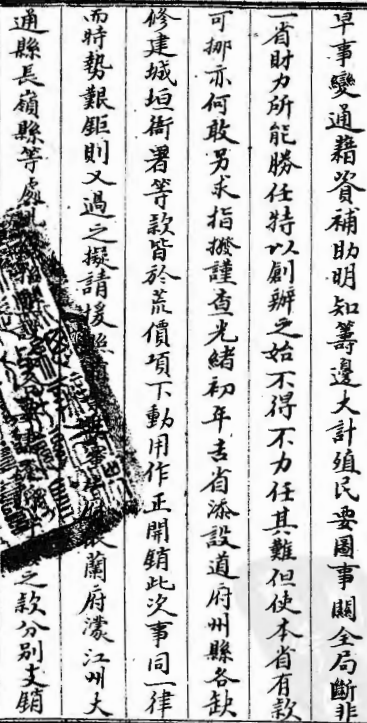 早事變通藉資補助明知籌邊大計殖民要圖事關全局斷非
一省財力所能勝任特以創辦之始不得不力任其難但使本省有款
可挪亦何敢另求指撥謹查光緒初年吉省添設道府州縣各缺
修建城垣衙署等款皆於荒價項下動用作正開銷此次事同一律
而時勢艱鉅則又過之擬請援照 蘭府濛江州大
通縣長嶺縣等處 之款分別支銷